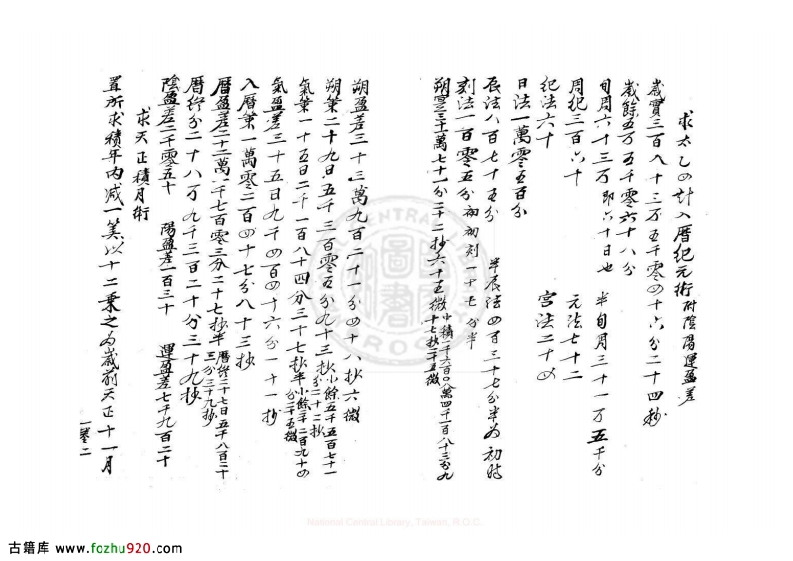 求太乙四計入曆紀元術附陰陽運盈差
歲實三百八十三万五千零四十六分二十四秒
歲餘五万五千零六十八分
旬周六十三万即六十日也 半旬月三十一万五千分
周紀三百六十 元法七十二
紀法六十 宮法二十四
日法一萬零五百分
辰法八百七十五分 半辰法四百三十七分半為初時
刻法一百零五分初初刻一十七分半
朔實三十一萬七十一分二十二抄六十五微小積二千六百〇八萬四千一百八十三分九
十七抄二十五微
朔盈差三十三萬九百二十一分四十八抄六微
朔策二十九日五千三百零五分九十三抄小餘五千五百七十一
分二十二抄
氣策一十五日二千一百八十四分三十七抄半小餘二千二百九十四
分二十五微
氣盈差三十五日九千四百四十六分一十一抄
入曆策一萬零二百四十七分八十三抄
曆盈差二十二萬一千七百零三分二十七抄半曆終二十七日五千八百二十
三分三十九抄
曆終分二十八万九千三百二十分三十九抄
陰盈差二千零五十 陽盈差一百三十 運盈差七千九百二十
求天正積月術
置所求積年內减一筭以十二乘之為歲前天正十一月
一卷二
NATIONAL CENTRAL LIBRARY
R.O.C.
圖書
National Central Library, Taiwan, R.O.C.
古籍库 www.fozhu920.com